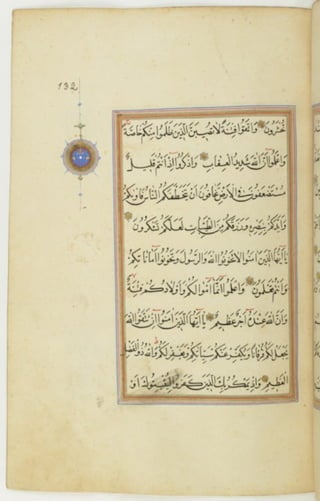 132
تُحْشَرُونَ وَاتَّقُوا فِتْنَةً لَا تُصِيبَنَّ الَّذِينَ ظَلَمُوا مِنْكُمْ خَاصَّةً
وَاعْلَمُوا أَنَّ اللَّهَ شَدِيدُ الْعِقَابِ وَاذْكُرُوا إِذْ أَنْتُمْ قَلِيلٌ
مُسْتَضْعَفُونَ فِي الْأَرْضِ تَخَافُونَ أَنْ يَتَخَطَّفَكُمُ النَّاسُ فَآوٰيكُمْ
وَأَيَّدَكُمْ بِنَصْرِهِ وَرَزَقَكُمْ مِنَ الطَّيِّبَاتِ لَعَلَّكُمْ تَشْكُرُونَ
يَا أَيُّهَا الَّذِينَ آمَنُوا لَا تَخُونُوا اللَّهَ وَالرَّسُولَ وَتَخُونُوا أَمَانَاتِكُمْ
وَأَنْتُمْ تَعْلَمُونَ وَاعْلَمُوا أَنَّمَا أَمْوَالُكُمْ وَأَوْلَادُكُمْ فِتْنَةٌ
وَأَنَّ اللَّهَ عِنْدَهُ أَجْرٌ عَظِيمٌ يَا أَيُّهَا الَّذِينَ آمَنُوا إِنْ تَتَّقُوا اللَّهَ
يَجْعَلْ لَكُمْ فُرْقَانًا وَيُكَفِّرْ عَنْكُمْ سَيِّئَاتِكُمْ وَيَغْفِرْ لَكُمْ وَاللَّهُ ذُو الْفَضْلِ
الْعَظِيمِ وَإِذْ يَمْكُرُ بِكَ الَّذِينَ كَفَرُوا لِيُثْبِتُوكَ أَوْ